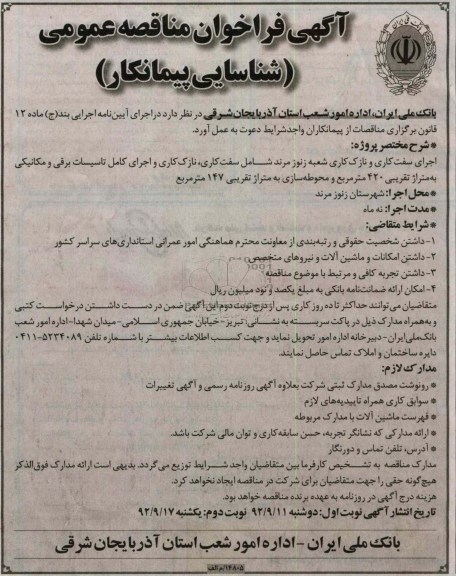 آگهی فراخوان مناقصه عمومی
(شناسایی پیمانکار)
بانک ملی ایران، اداره امور شعب استان آذربایجان شرقی در نظر دارد در اجرای آیین‌نامه اجرایی بند(ج) ماده ۱۲
قانون برگزاری مناقصات از پیمانکاران واجد شرایط دعوت به عمل آورد.
* شرح مختصر پروژه:
اجرای سفت کاری و نازک کاری شعبه زنوز مرند شامل سفت کاری، نازک کاری و اجرای کامل تاسیسات برقی و مکانیکی
به متراژ تقریبی ۴۲۰ مترمربع و محوطه‌سازی به متراژ تقریبی ۱۴۷ مترمربع
* محل اجرا: شهرستان زنوز مرند
* مدت اجرا: نه ماه
* شرایط متقاضی:
۱- داشتن شخصیت حقوقی و رتبه‌بندی از معاونت محترم هماهنگی امور عمرانی استانداری‌های سراسر کشور
۲- داشتن امکانات و ماشین آلات و نیروهای متخصص
۳- داشتن تجربه کافی و مرتبط با موضوع مناقصه
۴- امکان ارائه ضمانت‌نامه بانکی به مبلغ یکصد و نود میلیون ریال
متقاضیان می‌توانند حداکثر تا ده روز کاری پس از درج نوبت دوم این آگهی ضمن در دست داشتن درخواست کتبی
و به همراه مدارک ذیل در پاکت سربسته به نشانی: تبریز- خیابان جمهوری اسلامی- میدان شهدا- اداره امور شعب
بانک ملی ایران- دبیرخانه اداره امور تحویل نماید و جهت کسب اطلاعات بیشتر با شماره تلفن ۵۲۳۴۰۸۹-۰۴۱۱
دایره ساختمان و املاک تماس حاصل نمایند.
مدارک لازم:
* رونوشت مصدق مدارک ثبتی شرکت بعلاوه آگهی روزنامه رسمی و آگهی تغییرات
* سوابق کاری همراه تاییدیه‌های لازم
* فهرست ماشین آلات با مدارک مربوطه
* ارائه مدارکی که نشانگر تجربه، حسن سابقه کاری و توان مالی شرکت باشد.
* آدرس، تلفن تماس و دورنگار
مدارک مناقصه به تشخیص کارفرما بین متقاضیان واجد شرایط توزیع می‌گردد. بدیهی است ارائه مدارک فوق‌الذکر
هیچ‌گونه حقی را جهت متقاضیان برای شرکت در مناقصه ایجاد نخواهد کرد.
هزینه درج آگهی در روزنامه به عهده برنده مناقصه خواهد بود.
تاریخ انتشار آگهی نوبت اول: دوشنبه ۹۲/۹/۱۱ نوبت دوم: یکشنبه ۹۲/۹/۱۷
بانک ملی ایران - اداره امور شعب استان آذربایجان شرقی
۱۴۸۰۵/م الف